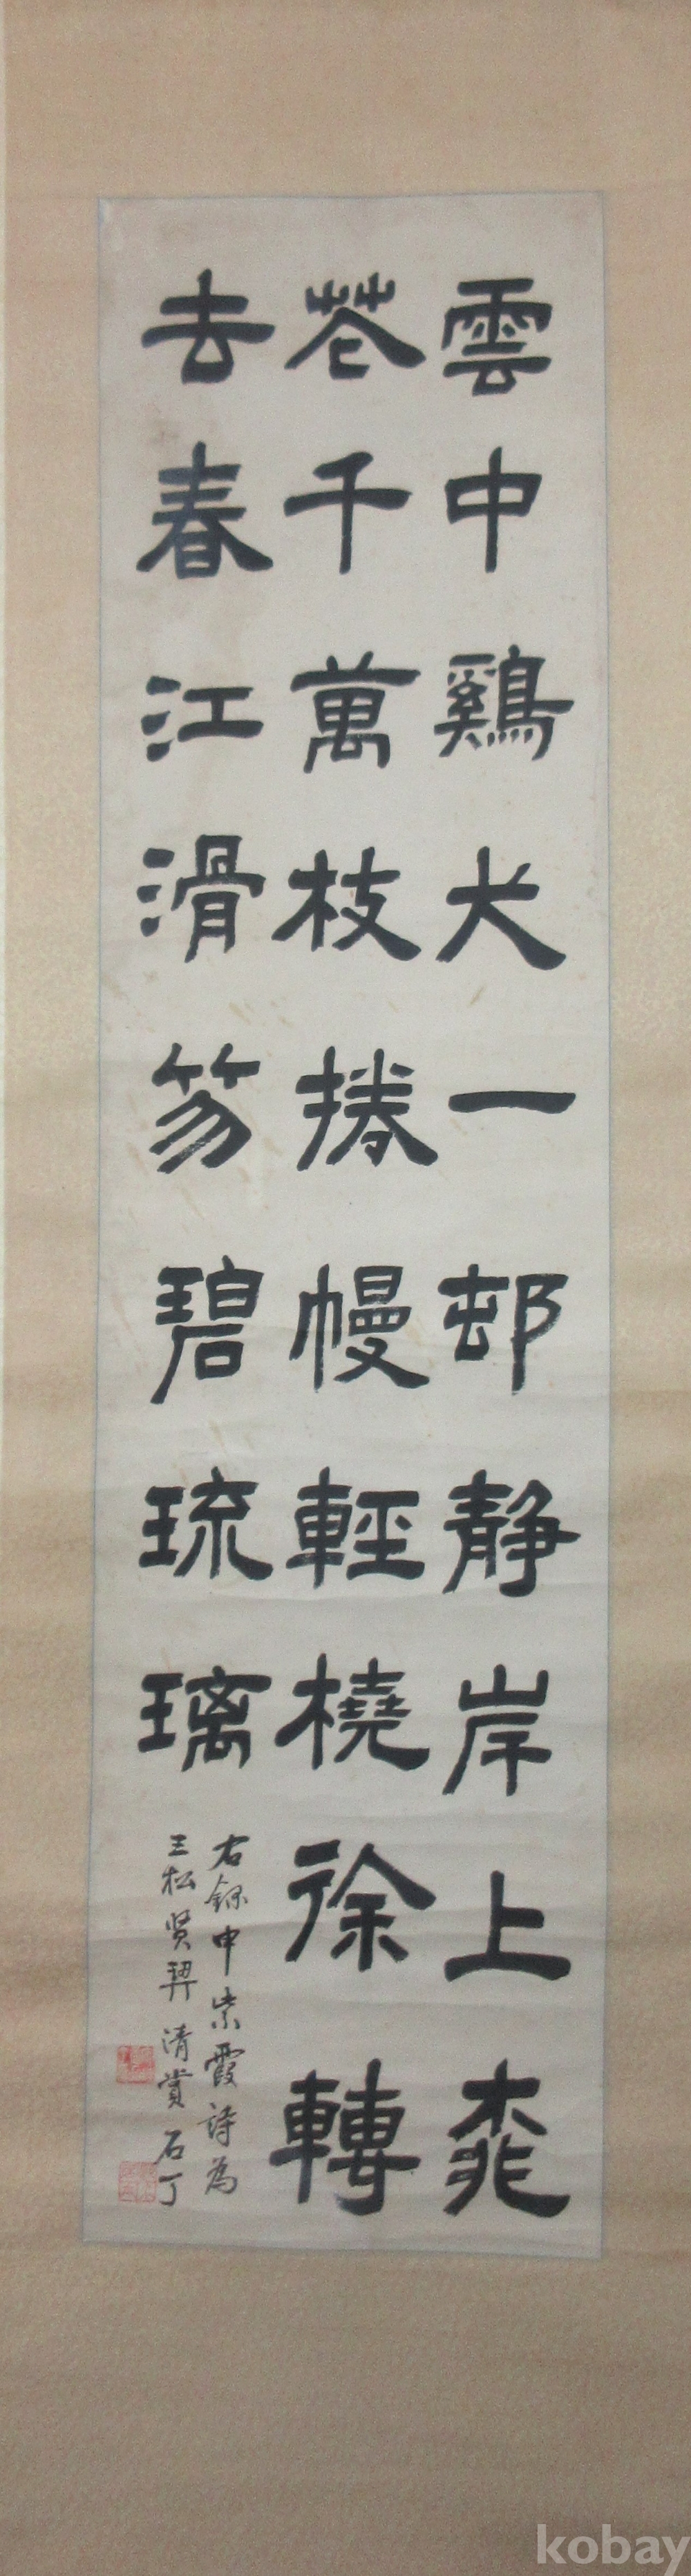 雲中鷄犬一邨静岸上桃
花千萬枝捲幔輕橈徐轉
去春江滑笏碧琉璃
右錄申紫霞詩為
三松賢契清賞 石丁
kobay